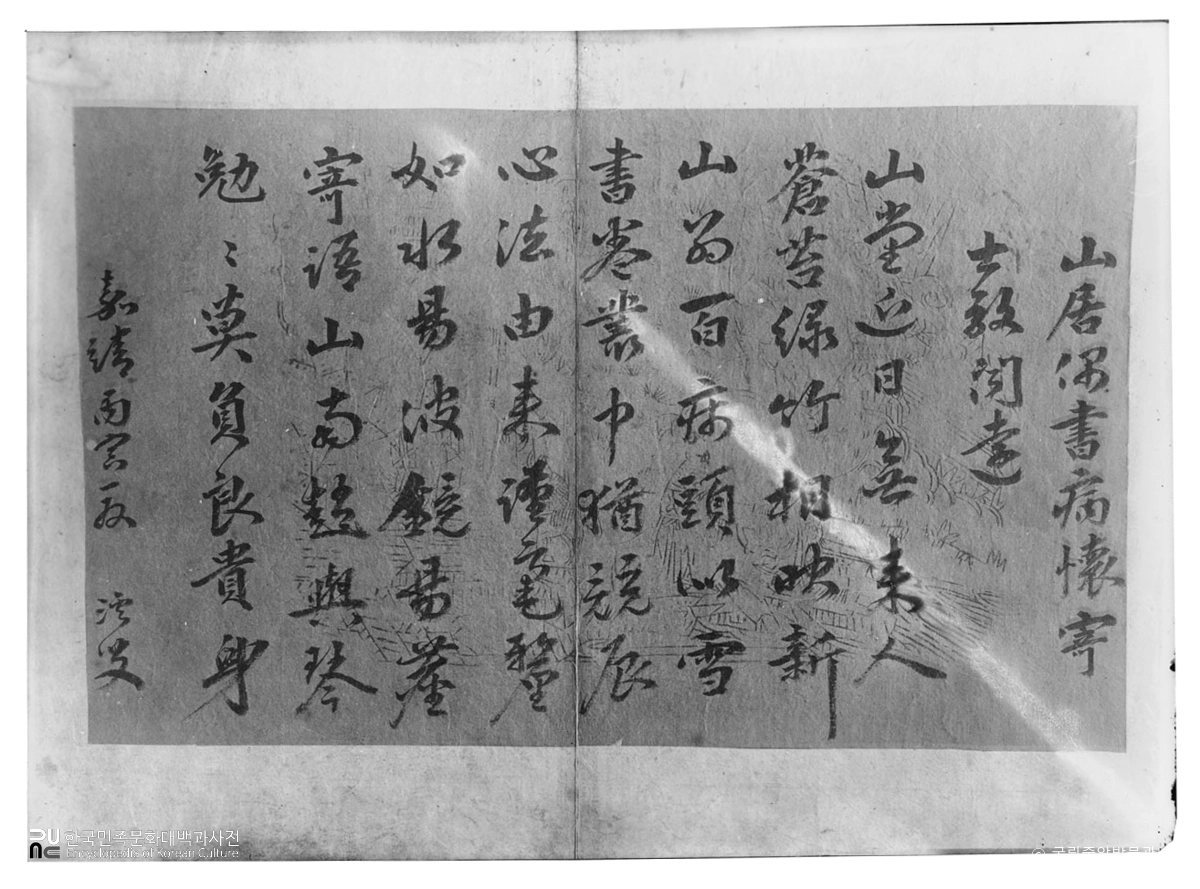 山居偶書病懷寄
士敬聞遠
山堂近日無来人
蒼苔綠竹相映新
山翁百病頭似雪
書卷叢中猶競辰
心法由来謹毫釐
如水易波鏡易塵
寄語山南趙與琴
勉〻莫負良貴身
嘉靖丙寅 溪叟
한국민족문화대백과사전
Encyclopedia of Korean Culture